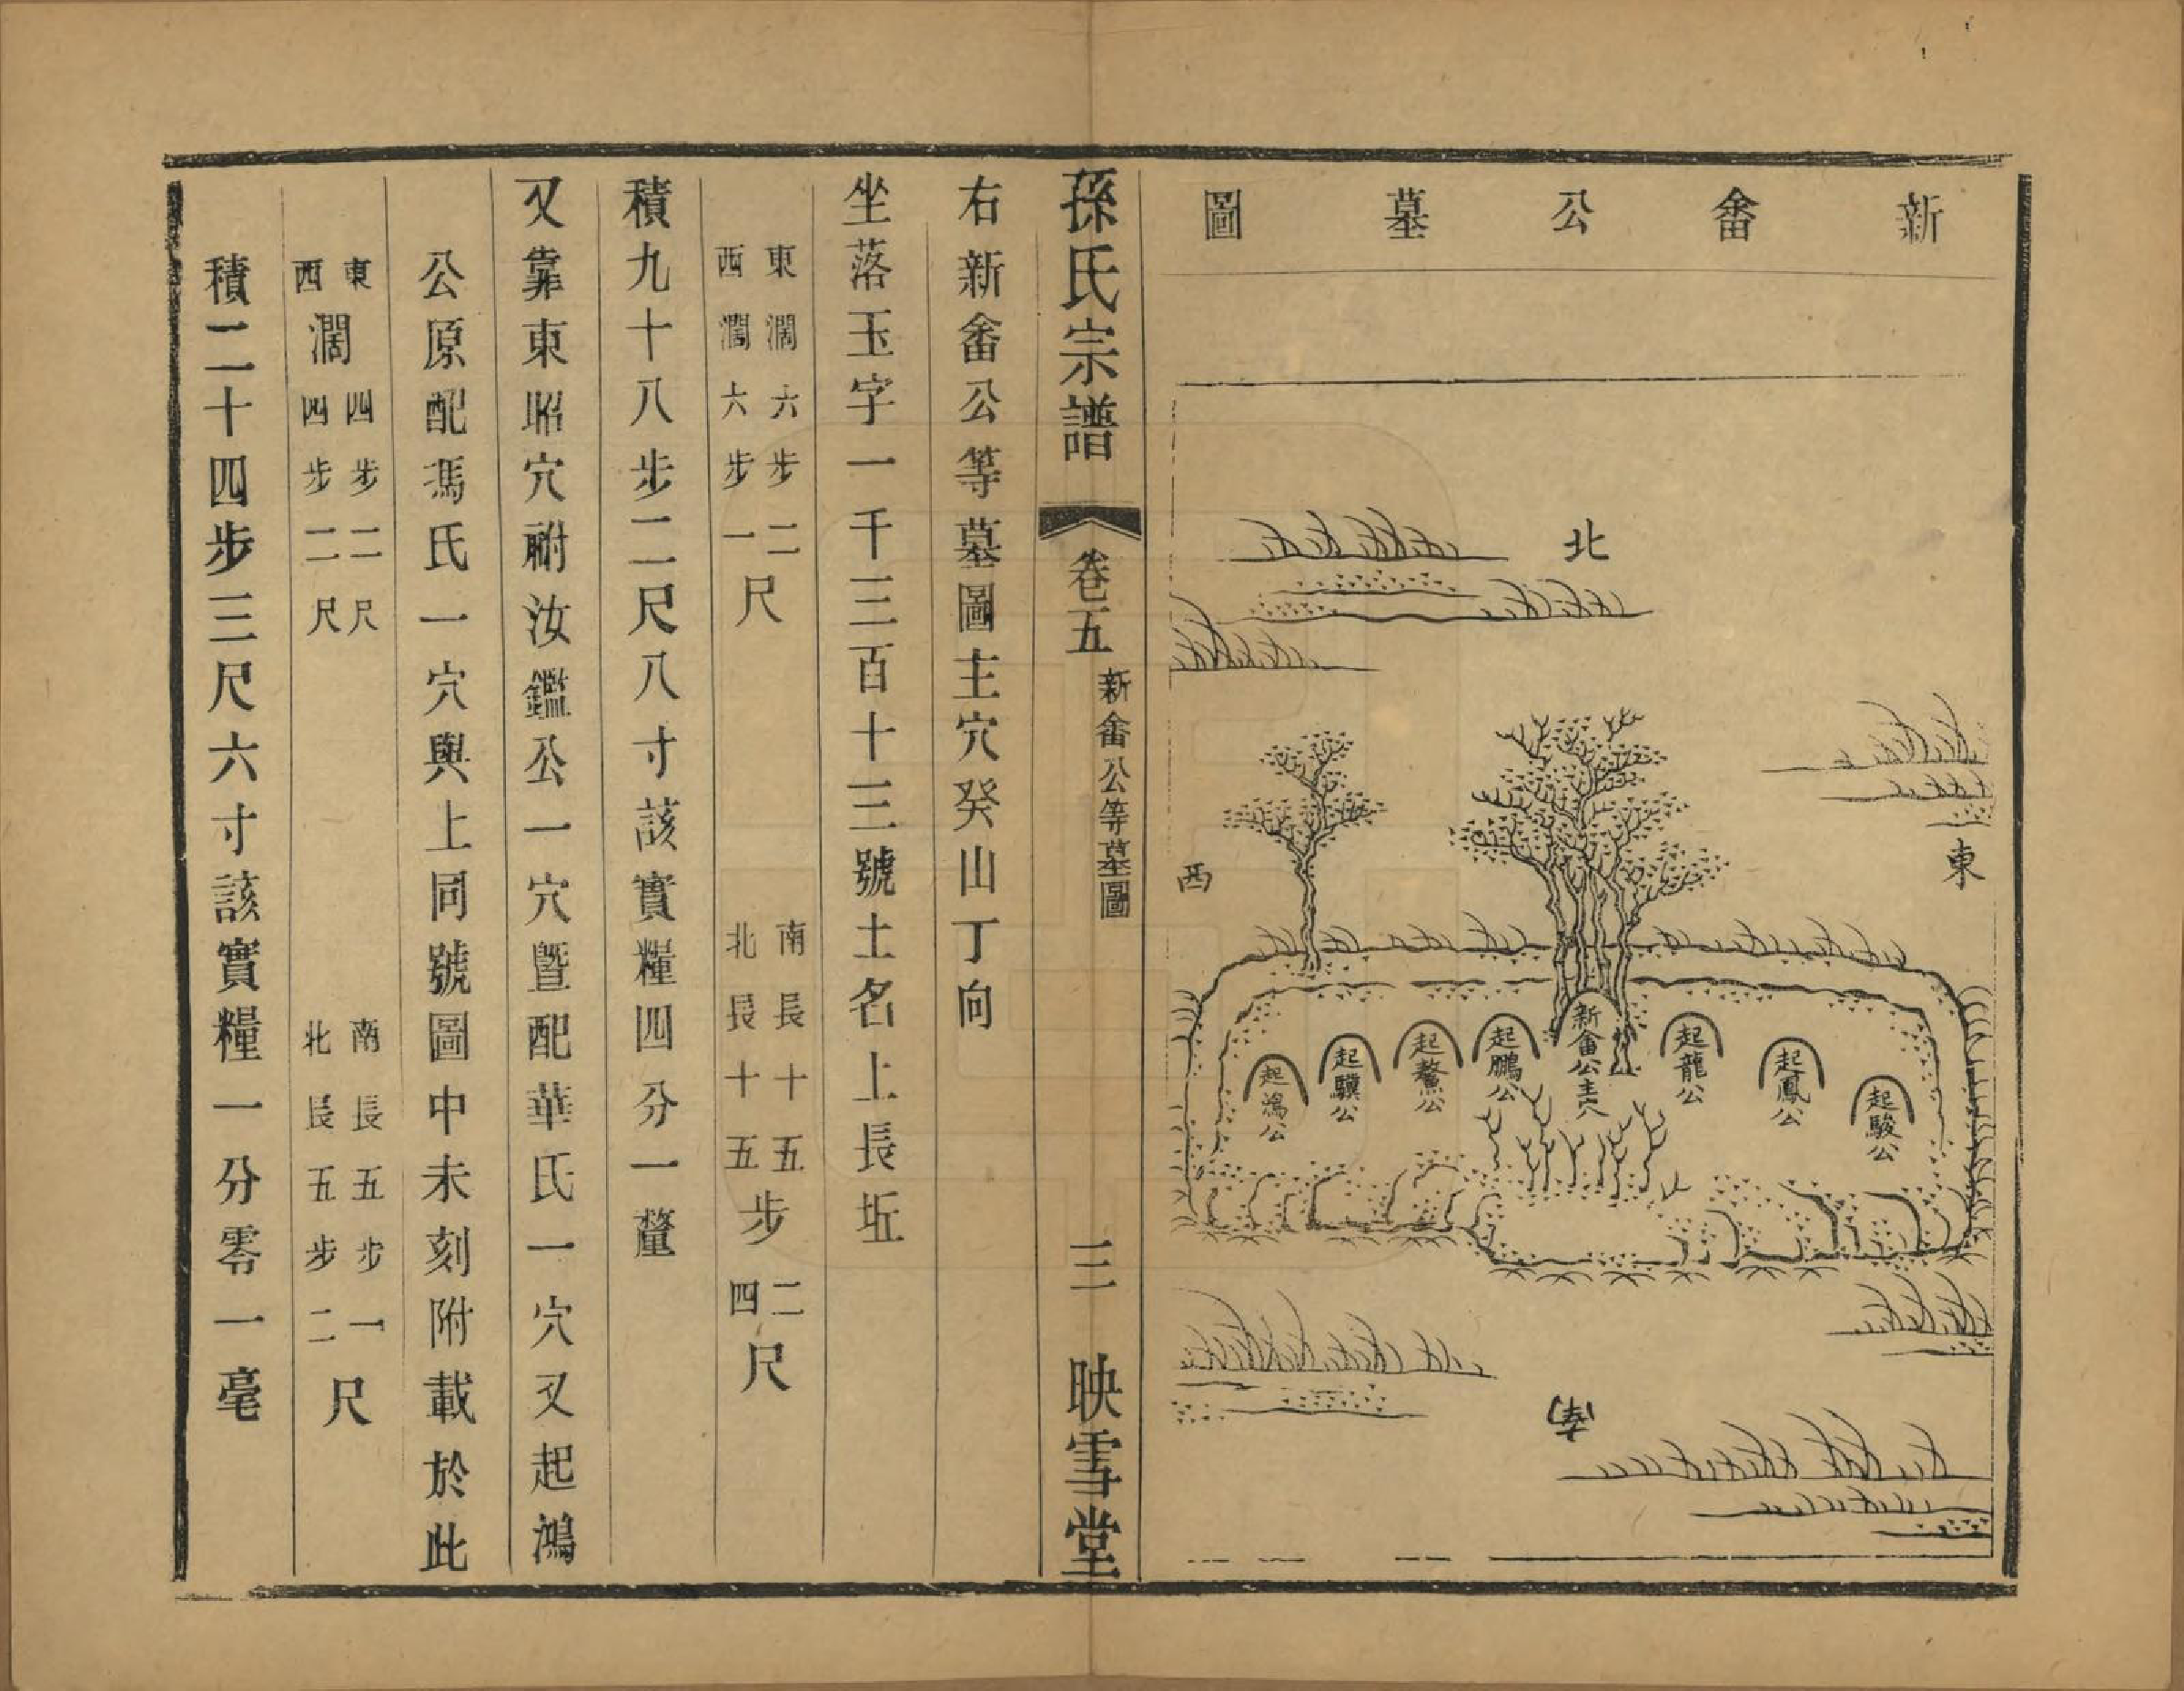 新畬公墓圖
北
東
西
南
起駿公
起鳳公
起龍公
新畬公主穴
起鵬公
起鰲公
起驥公
起鴻公
孫氏宗譜 卷五 新畬公等墓圖 三 映雪堂
右新畬公等墓圖主穴癸山丁向
坐落玉字一千三百十三號土名上長坵
東濶六步二尺 南長十五步二尺
西濶六步一尺 北長十五步四尺
積九十八步二尺八寸該實糧四分一釐
又靠東昭穴祔汝鑑公一穴暨配華氏一穴又起鴻
公原配馮氏一穴與上同號圖中未刻附載於此
東濶四步二尺 南長五步一尺
西濶四步二尺 北長五步二尺
積二十四步三尺六寸該實糧一分零一毫